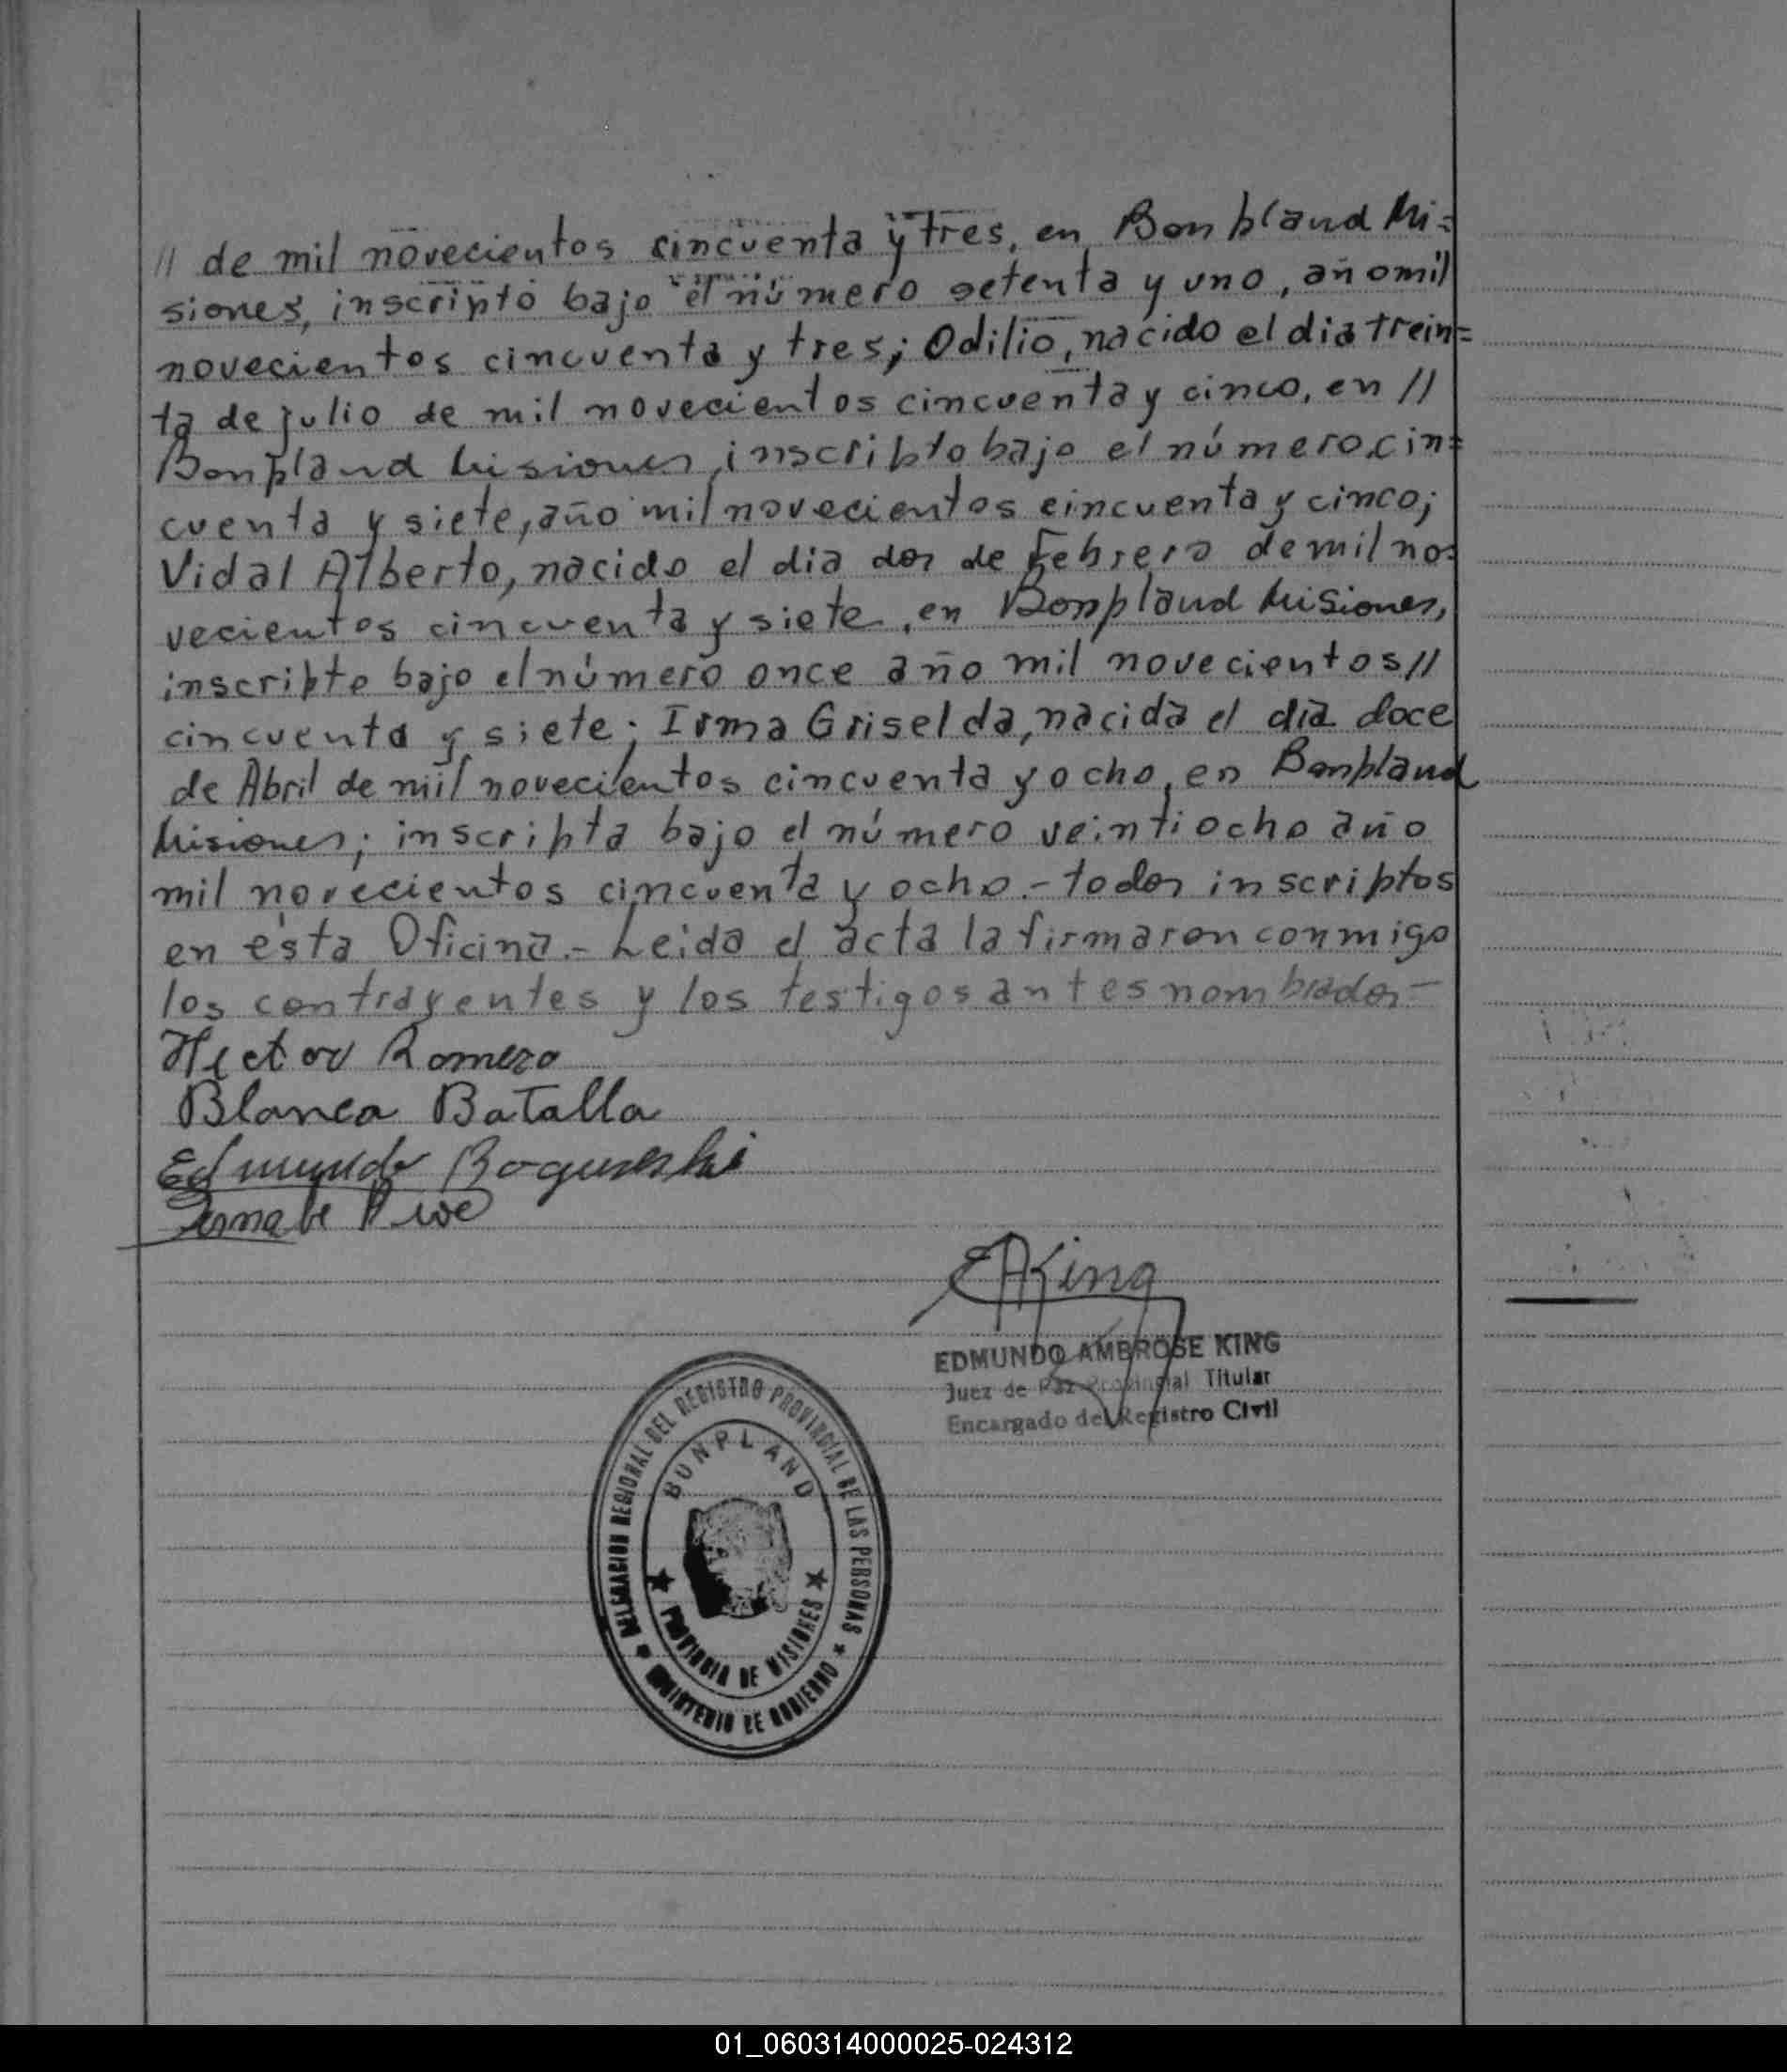 // de mil novecientos cincuenta y tres, en Bonpland Mi=
siones, inscripto bajo el número setenta y uno, año mil
novecientos cincuenta y tres; Odilio, nacido el dia trein=
ta de julio de mil novecientos cincuenta y cinco, en //
Bonpland Misiones, inscripto bajo el número cin=
cuenta y siete, año mil novecientos cincuenta y cinco;
Vidal Alberto, nacido el dia dos de Febrero de mil no=
vecientos cincuenta y siete, en Bonpland Misiones,
inscripto bajo el número once año mil novecientos //
cincuenta y siete; Irma Griselda, nacida el día doce
de Abril de mil novecientos cincuenta y ocho, en Bonpland
Misiones; inscripta bajo el número veintiocho año
mil novecientos cincuenta y ocho.- todos inscriptos
en ésta Oficina.- Leida el acta la firmaron conmigo
los contrayentes y los testigos antes nombrados-
Hector Romero
Blanca Batalla
Edmundo
EAKing
EDMUNDO AMBROSE KING
Juez de Paz Provincial Titular
Encargado del Registro Civil
DELEGACION REGIONAL DEL REGISTRO PROVINCIAL DE LAS PERSONAS
BONPLAND
PROVINCIA DE MISIONES
MINISTERIO DE GOBIERNO
01_060314000025-024312